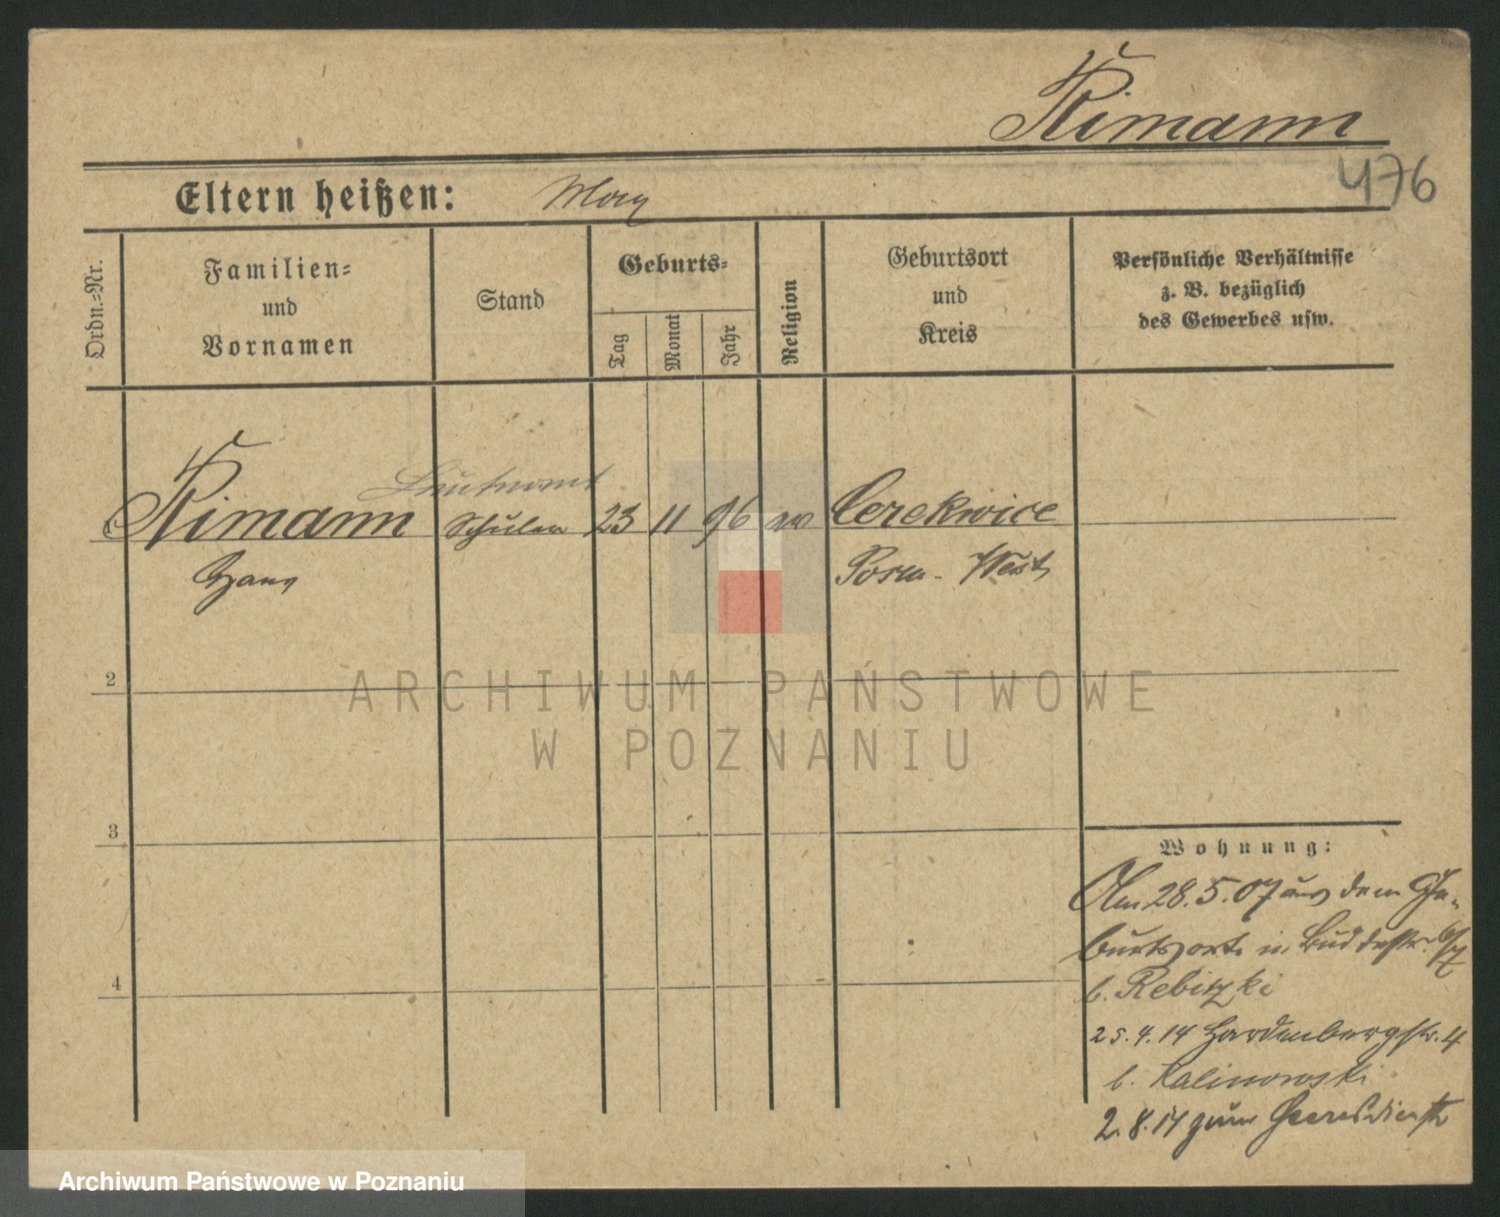 Rimann
476
Eltern heißen: Max
Ordn.-Nr.
Familien-
und
Vornamen
Stand
Geburts-
Tag
Monat
Jahr
Religion
Geburtsort
und
Kreis
Persönliche Verhältnisse
z. B. bezüglich
des Gewerbes usw.
Leutnant
Rimann Schüler 23 11 96 ev Cerekwice
Hans Posen-West
2
3
4
Wohnung:
Am 28.5.07 aus dem Ge-
burtsorte in Buddestr.
b. Rebitzki
25.4.14 Hardenbergstr. 4
b. Kalinowski
2.8.14 zum Heeresdienst
ARCHIWUM PAŃSTWOWE
W POZNANIU
Archiwum Państwowe w Poznaniu